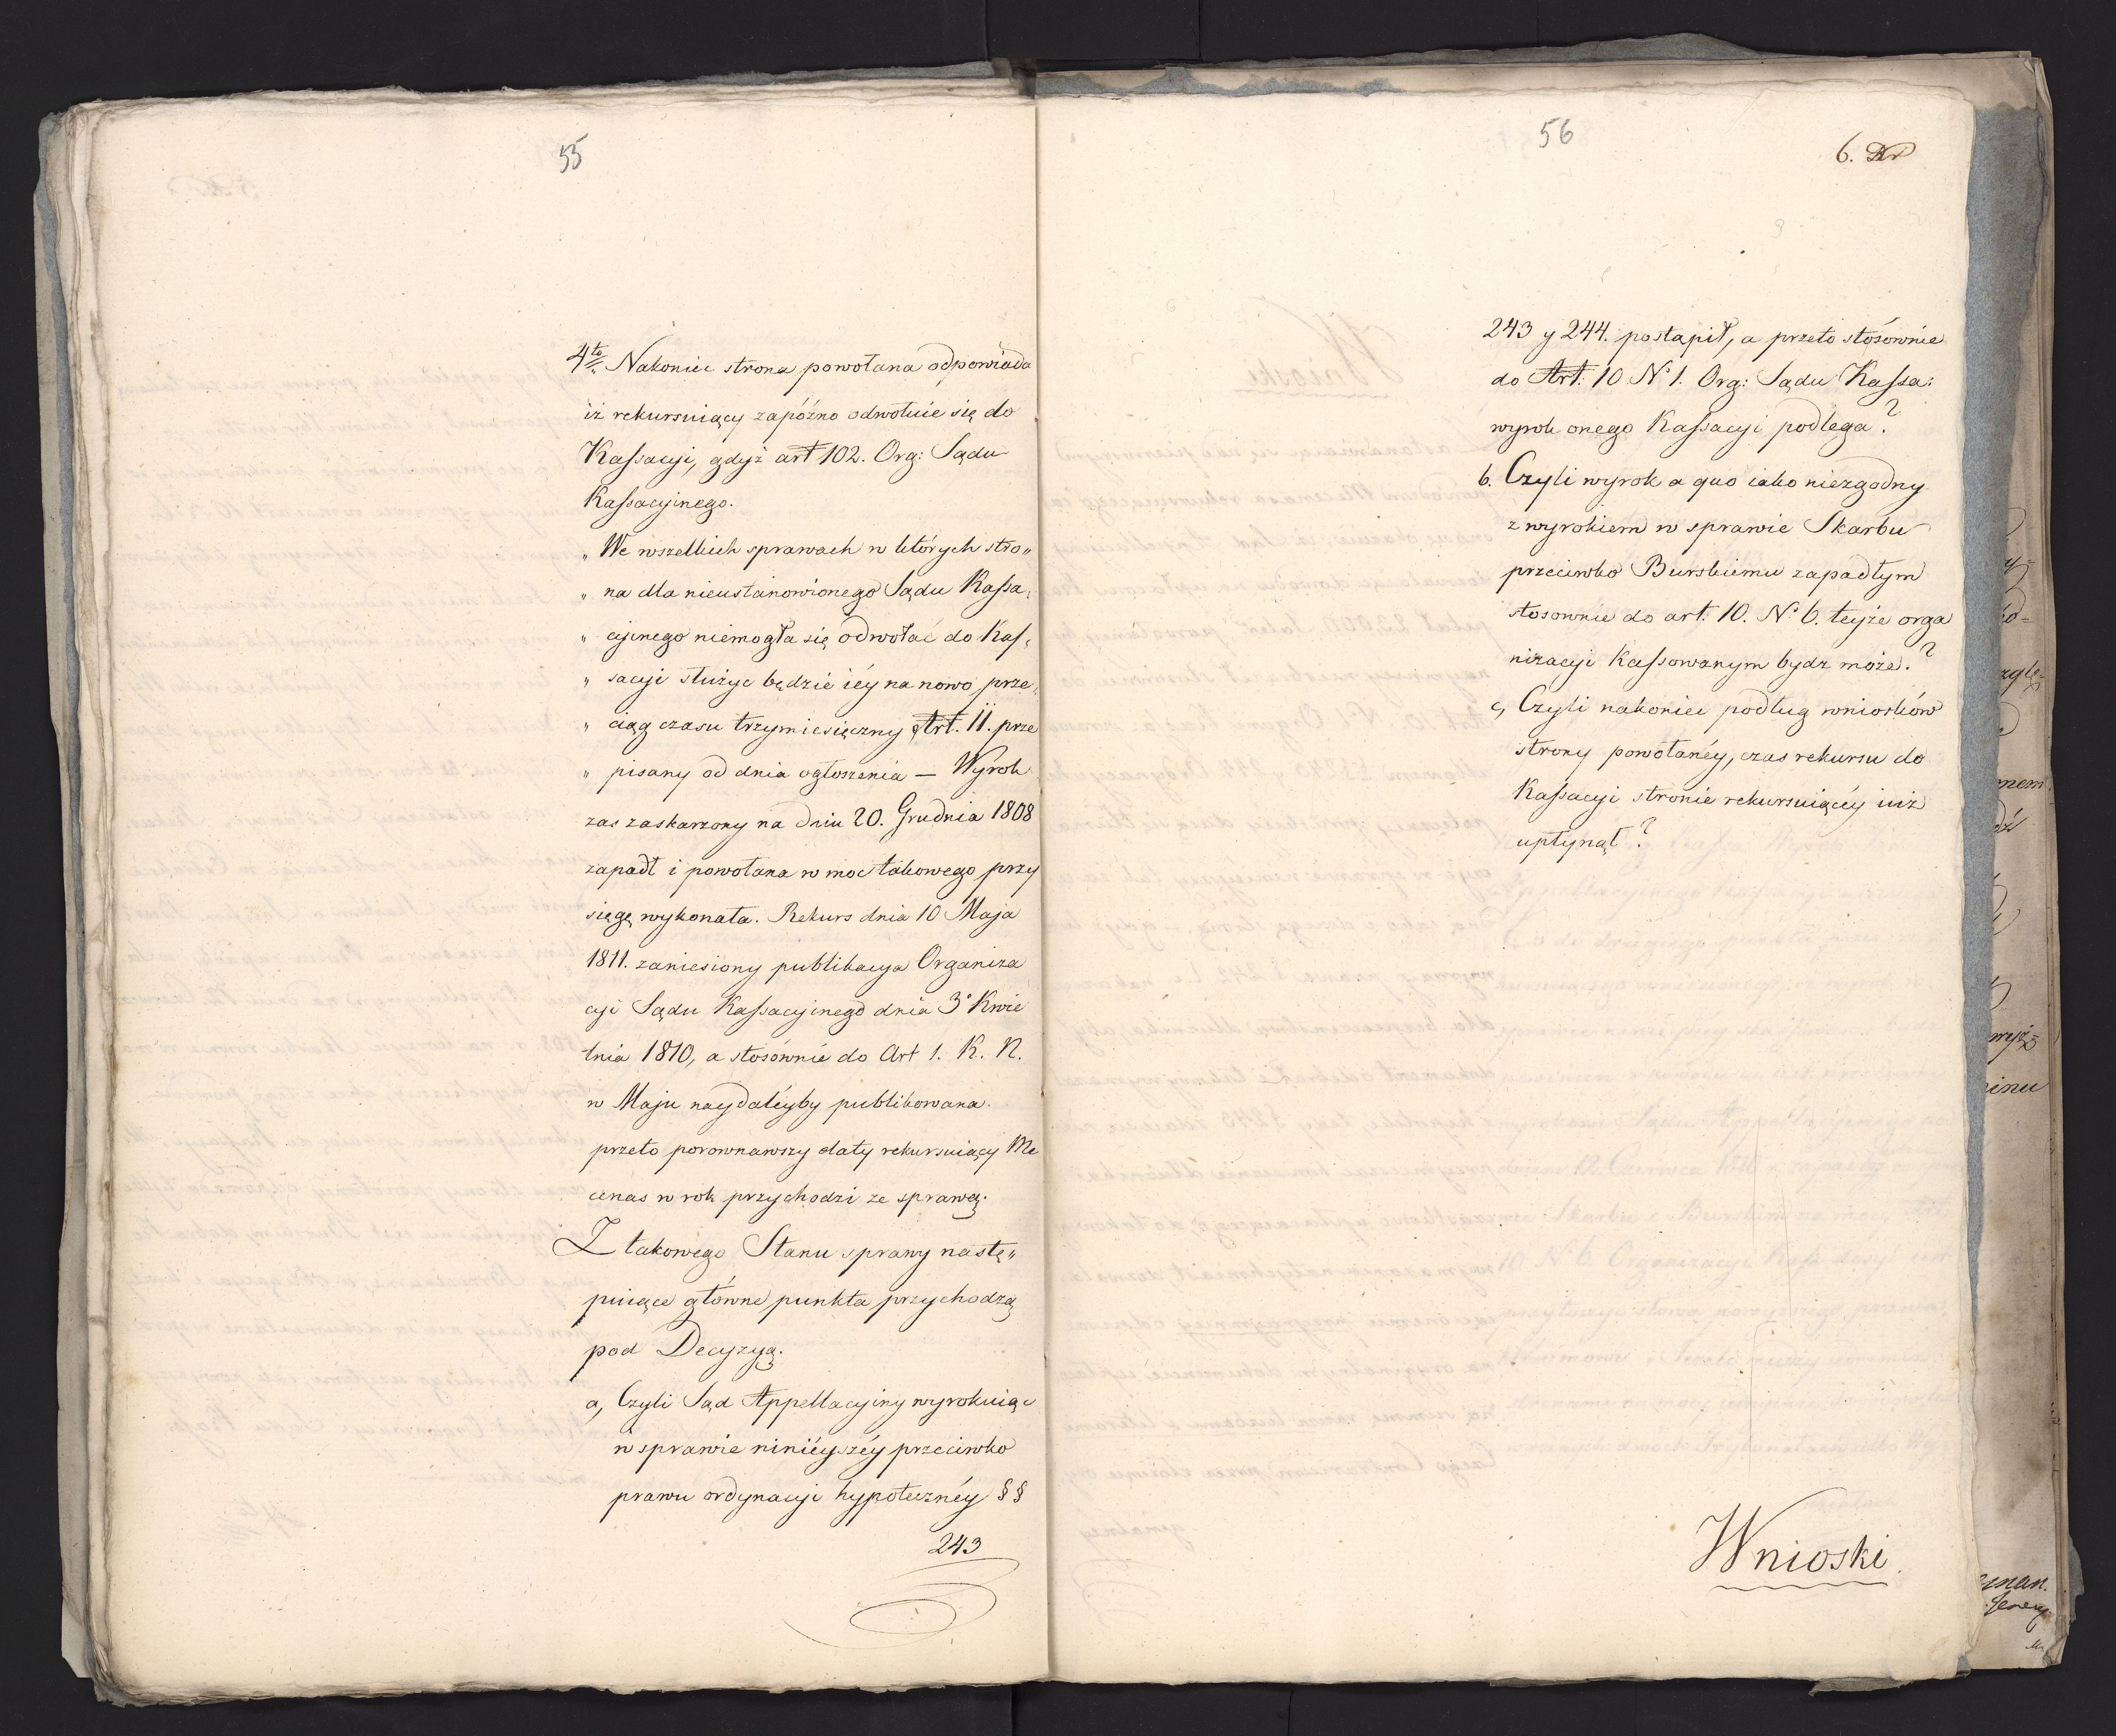 55
4to Nakoniec strona powołana odpowiada
iż rekursuiący zapóźno odwołuie się do
Kassacyi, gdyż art 102. Org: Sądu
Kassacyinego.
„ We wszelkich sprawach w których stro„
„ na dla nieustanowionego Sądu Kassa„
„ cyinego niemogła się odwołać do Kas„
„ sacyi służyc będzie iéy na nowo prze„
„ ciąg czasu trzymiesięczny Art. 11. prze
„ pisany od dnia ogłoszenia — Wyrok
zas zaskarzony na dniu 20. Grudnia 1808
zapadł i powołana w moc takowego przy
sięgę wykonała. Rekurs dnia 10 Maja
1811. zaniesiony publikacya Organiza
cyi Sądu Kassacyinego dnia 3° Kwie
tnia 1810, a stósównie do Art 1. K. N.
w Maju naydaléyby publikowana.
przeto porownawszy daty rekursuiący Me
cenas w rok przychodzi ze sprawą.
Z takowego Stanu sprawy nastę„
puiące główne punkta przychodzą
pod Decyzyą.
a, Czyli Sąd Appellacyiny wyrokuiąc
w sprawie niniéyszéy przeciwko
prawu ordynacyi hypotecznéy § §
243
56
6.
243 y 244. postąpił, a przeto stósównie
do Art. 10 N° 1. Org: Sądu Kassa:
wyrok onego Kassacyi podlega?
b. Czyli wyrok a quo iako niezgodny
z wyrokiem w sprawie Skarbu
przeciwko Burskiemu zapadłym
stosownie do art. 10. N° 6. teyże orga
nizacyi Kassowanym bydz może?
c, Czyli nakoniec podług wniosków
strony powołanéy, czas rekursu do
Kassacyi stronie rekursuiącéy iuż
upłynął?
Wnioski